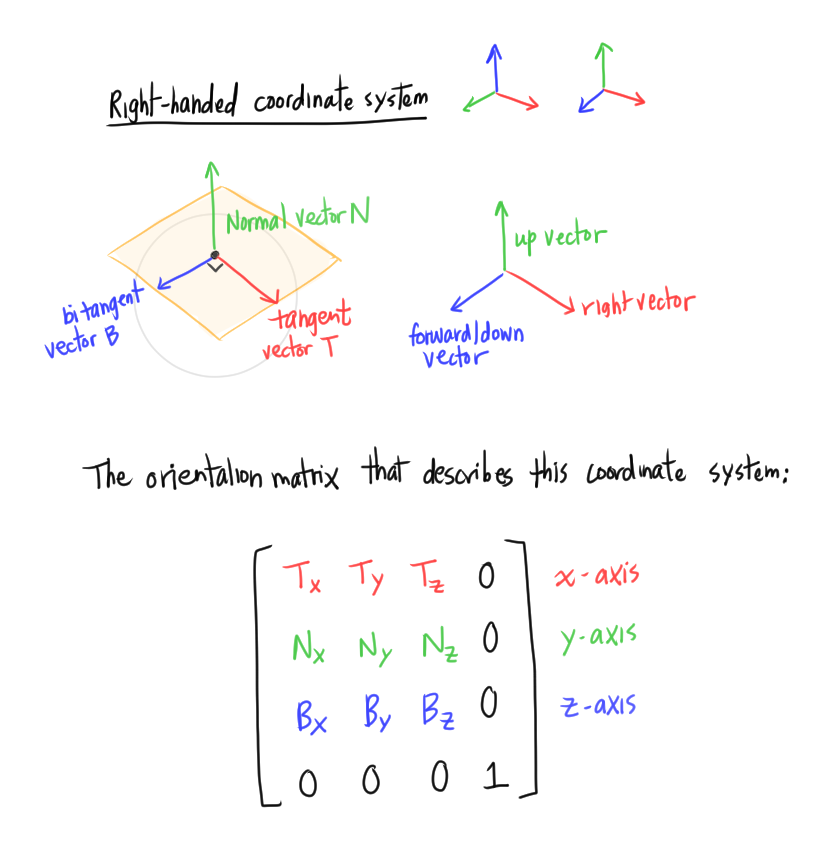 Right-handed coordinate system
Normal vector N
bi-tangent
vector B
tangent
vector T
up vector
right vector
forward/down
vector
The orientation matrix that describes this coordinate system:
Tx Ty Tz 0 x-axis
Nx Ny Nz 0 y-axis
Bx By Bz 0 z-axis
0 0 0 1